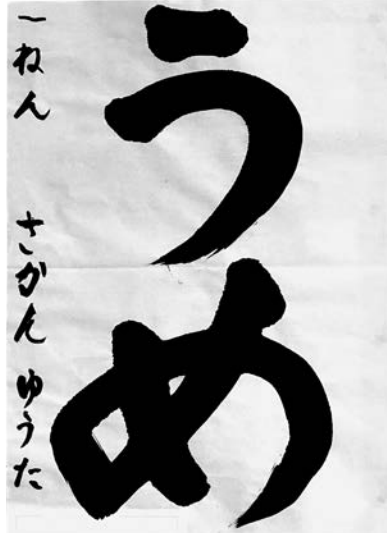 うめ
一ねん さかん ゆうた